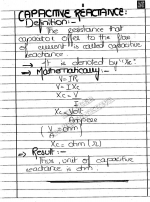 CAPACITIVE REACTANCE:
Definition:-
The resistance that
capacitor offer to the flow
of current is called capacitive
reactance.
→ It is denoted by "Xc"
→ Mathematically:-
V=IR
V=IXc
Xc = V
I
Xc = Volt
Ampere
(V = ohm)
A
Xc = ohm (Ω)
→ Result:-
Thus, unit of capacitive
reactance is ohm.